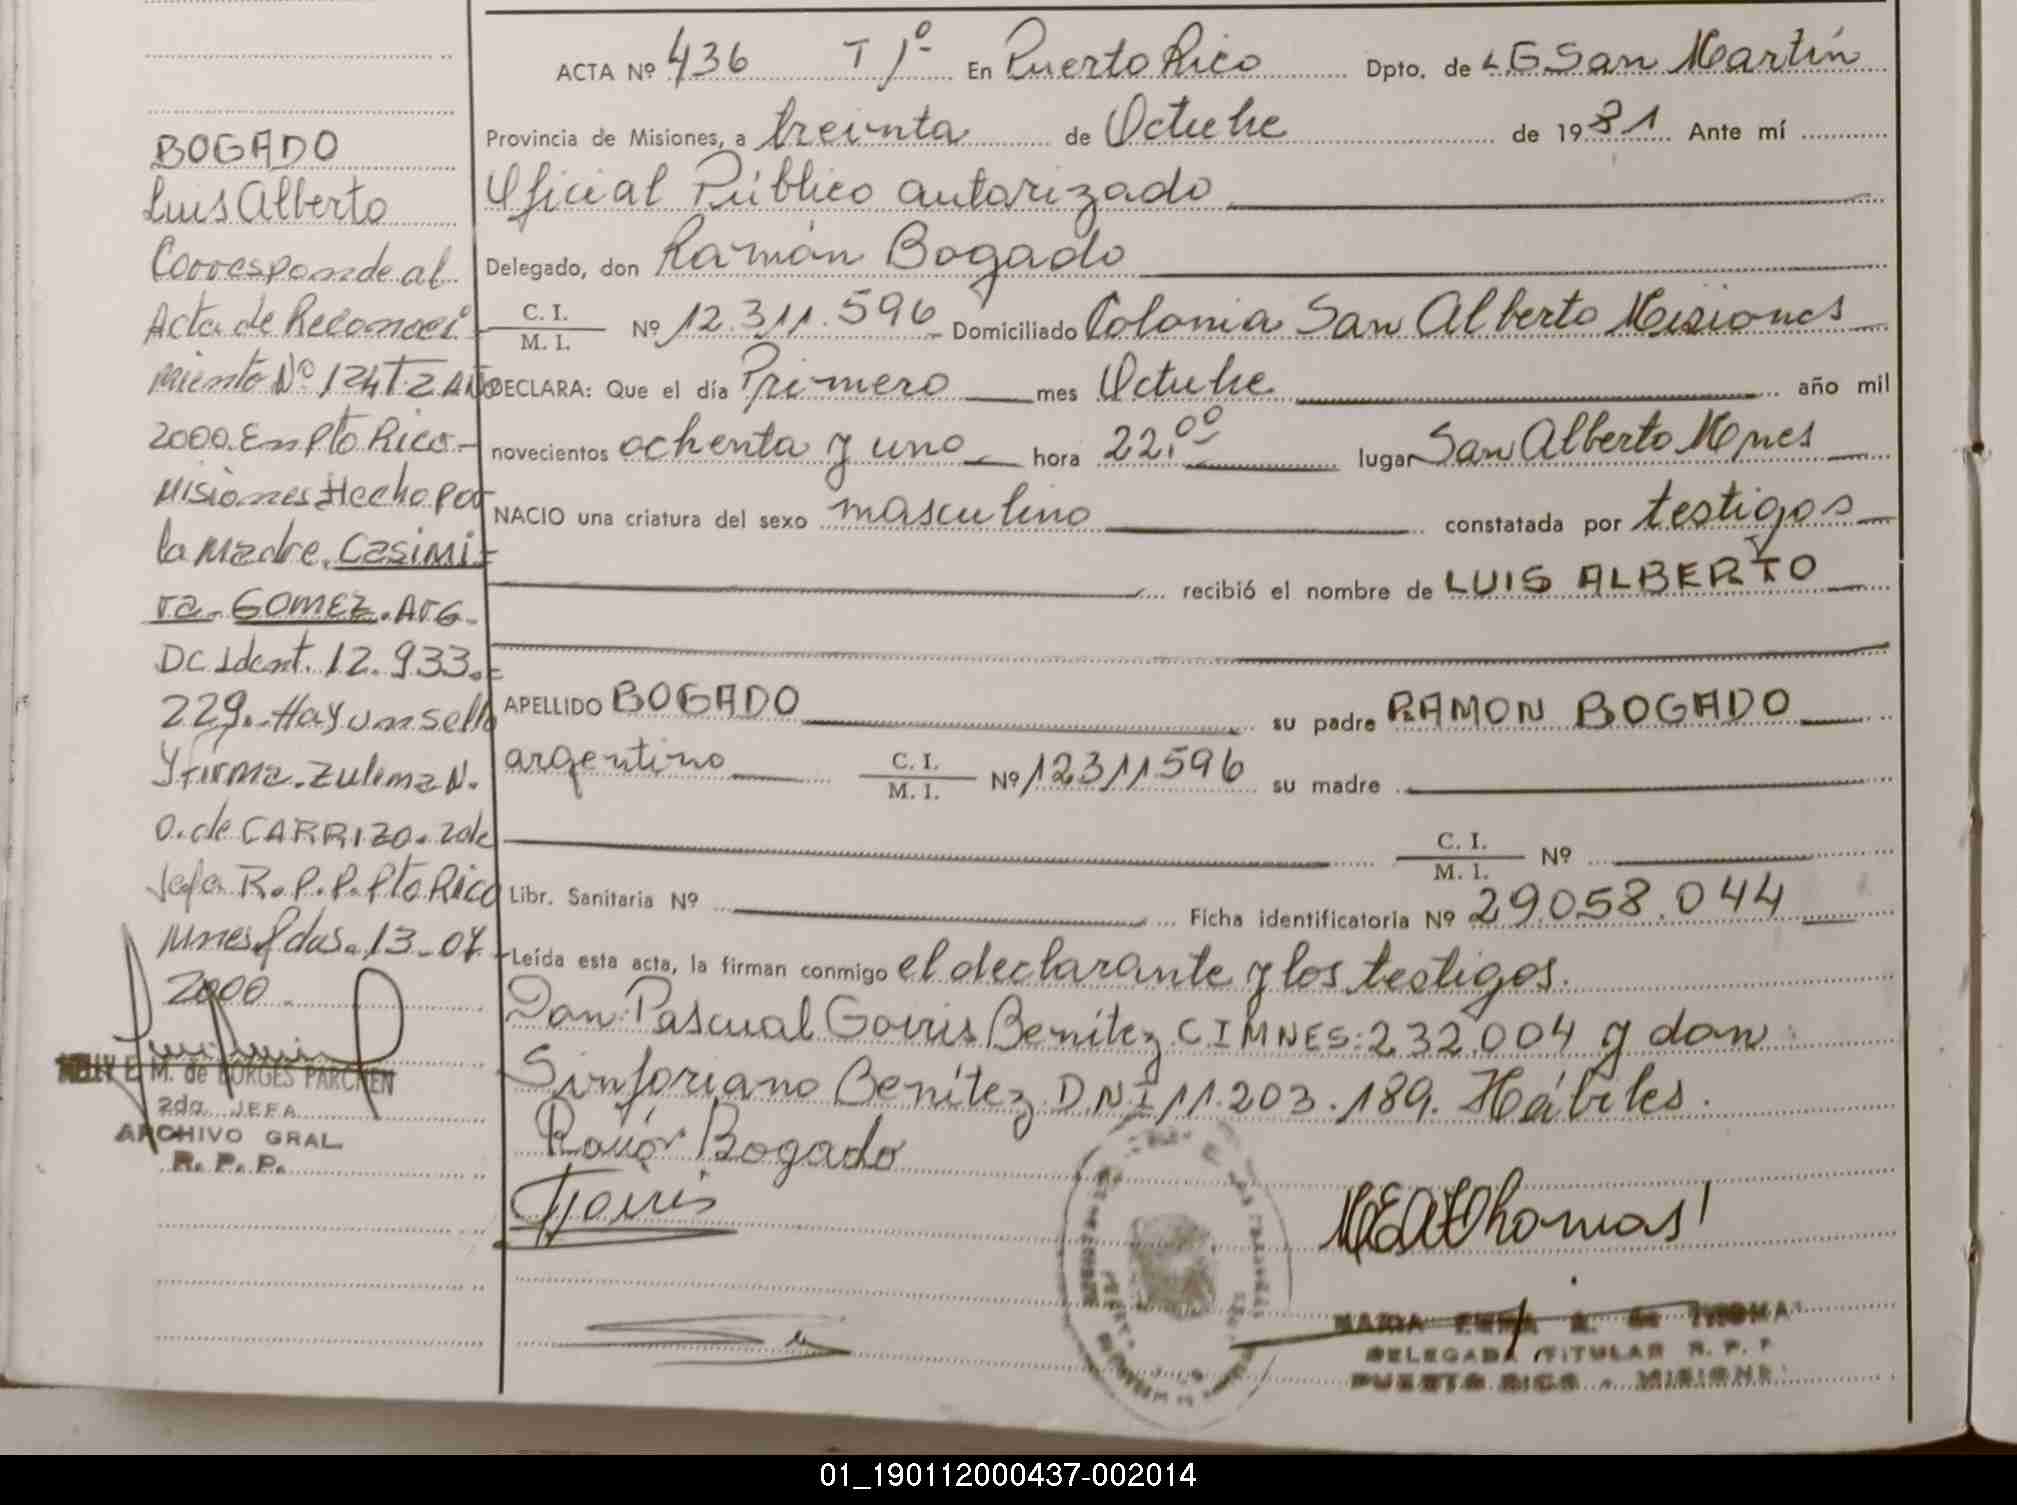 BOGADO
Luis Alberto
Corresponde al
Acta de Reconoci
miento Nº 124 T-2 Año
2000. En Pto Rico -
Misiones Hecho por
la Madre. Casimi-
ra. Gomez. Arg.
Dc Ident. 12.933.-
229.- Hay un sello
y firma. Zulema N.
O. de CARRIZO. 2da
Jefa R.P.P. Pto Rico
Mnes. Pdas. 13-07-
2000.
M. de BORGES PARCHEN
2da. JEFA
ARCHIVO GRAL
R. P. P.
ACTA Nº 436 T 1º En Puerto Rico Dpto. de LG San Martín
Provincia de Misiones, a treinta de Octubre de 1981 Ante mí
Oficial Público autorizado
Delegado, don Ramón Bogado
C. I.
M. I. Nº 12.311.596 Domiciliado Colonia San Alberto Misiones
DECLARA: Que el día Primero mes Octubre año mil
novecientos ochenta y uno hora 22.00 lugar San Alberto Mnes
NACIO una criatura del sexo masculino constatada por testigos
recibió el nombre de LUIS ALBERTO
APELLIDO BOGADO su padre RAMON BOGADO
argentino C. I.
M. I. Nº 12311596 su madre
C. I.
M. I. Nº
Libr. Sanitaria Nº Ficha identificatoria Nº 29.058.044
Leída esta acta, la firman conmigo el declarante y los testigos.
Don Pascual Govris Benítez CIMNES: 232.004 y don
Sinforiano Benítez DNI 11.203.189. Hábiles.
Ramón Bogado
Govris
MEA Thomas
MARIA EMMA A. de THOMAS
DELEGADA TITULAR R. P. P.
PUERTO RICO - MISIONES
01_190112000437-002014